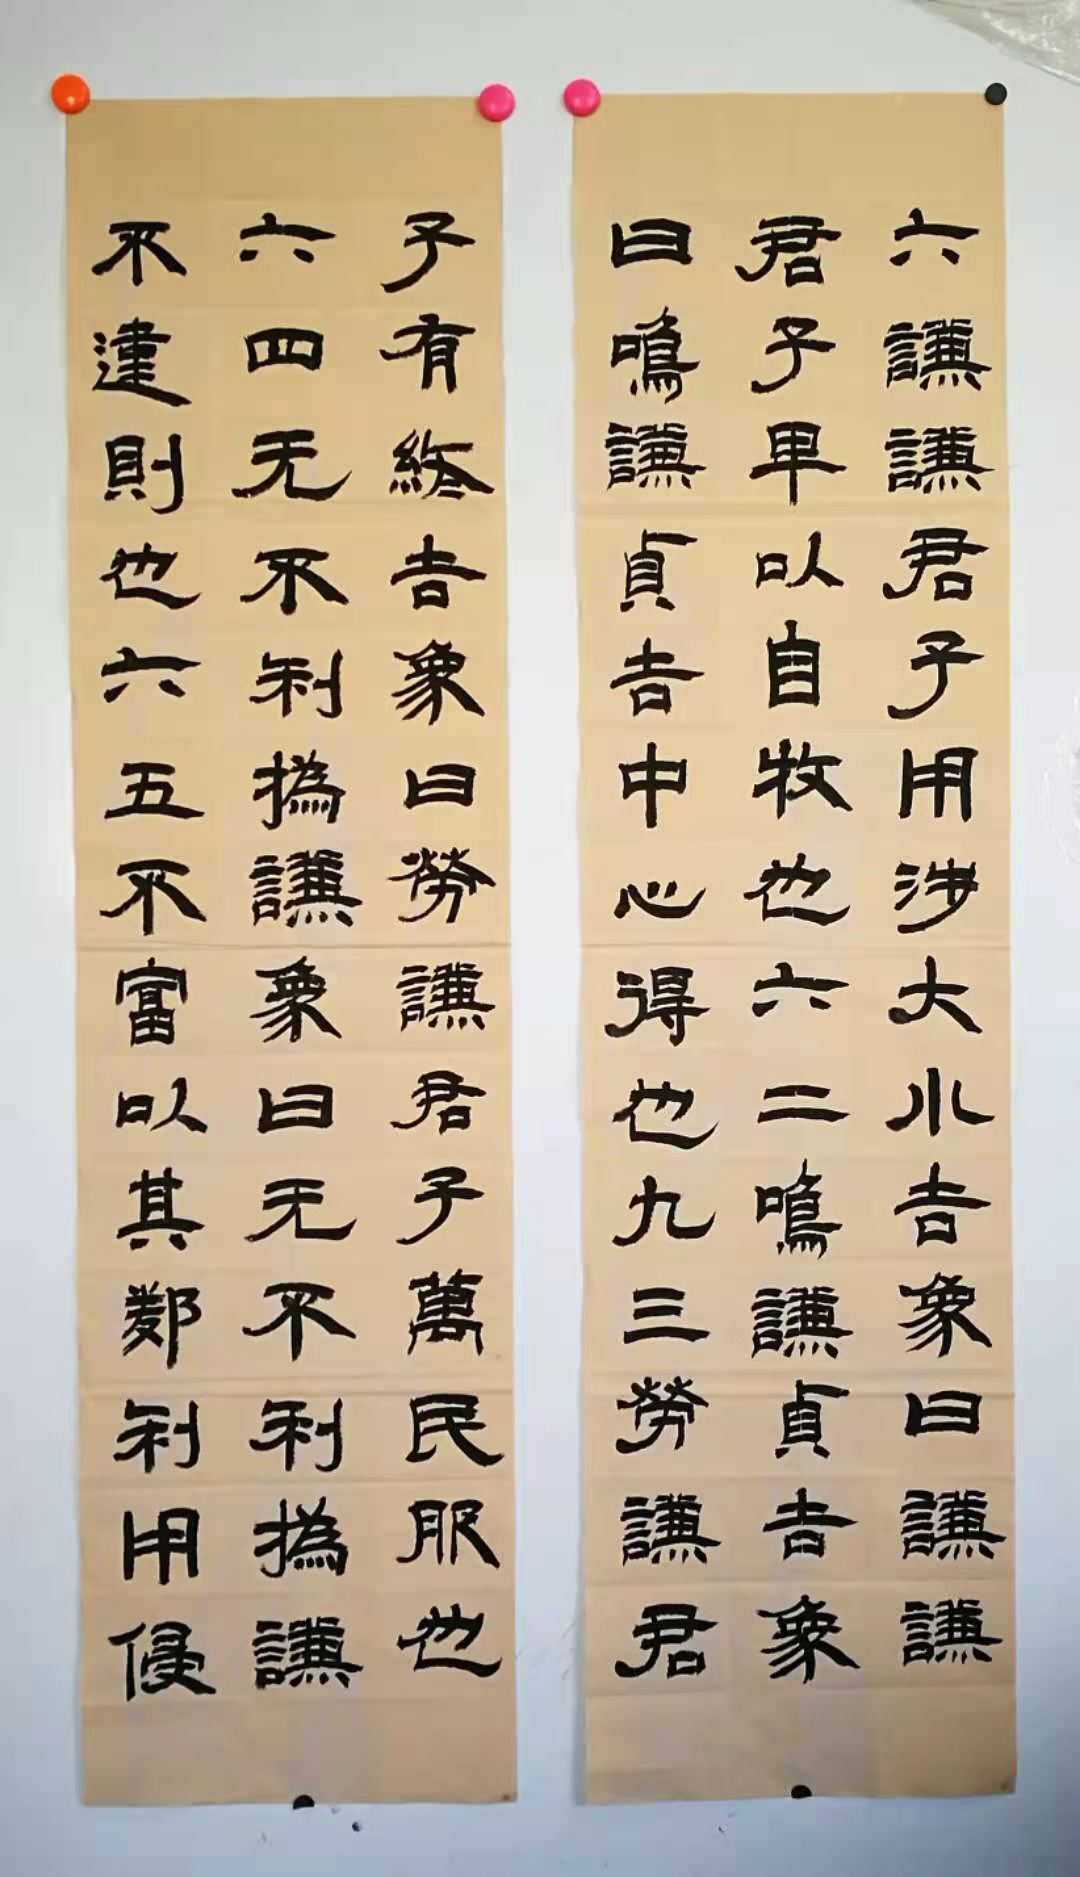 六謙謙君子用涉大川吉象曰謙謙
君子卑以自牧也六二鳴謙貞吉象
曰鳴謙貞吉中心得也九三勞謙君
子有終吉象曰勞謙君子萬民服也
六四无不利撝謙象曰无不利撝謙
不違則也六五不富以其鄰利用侵